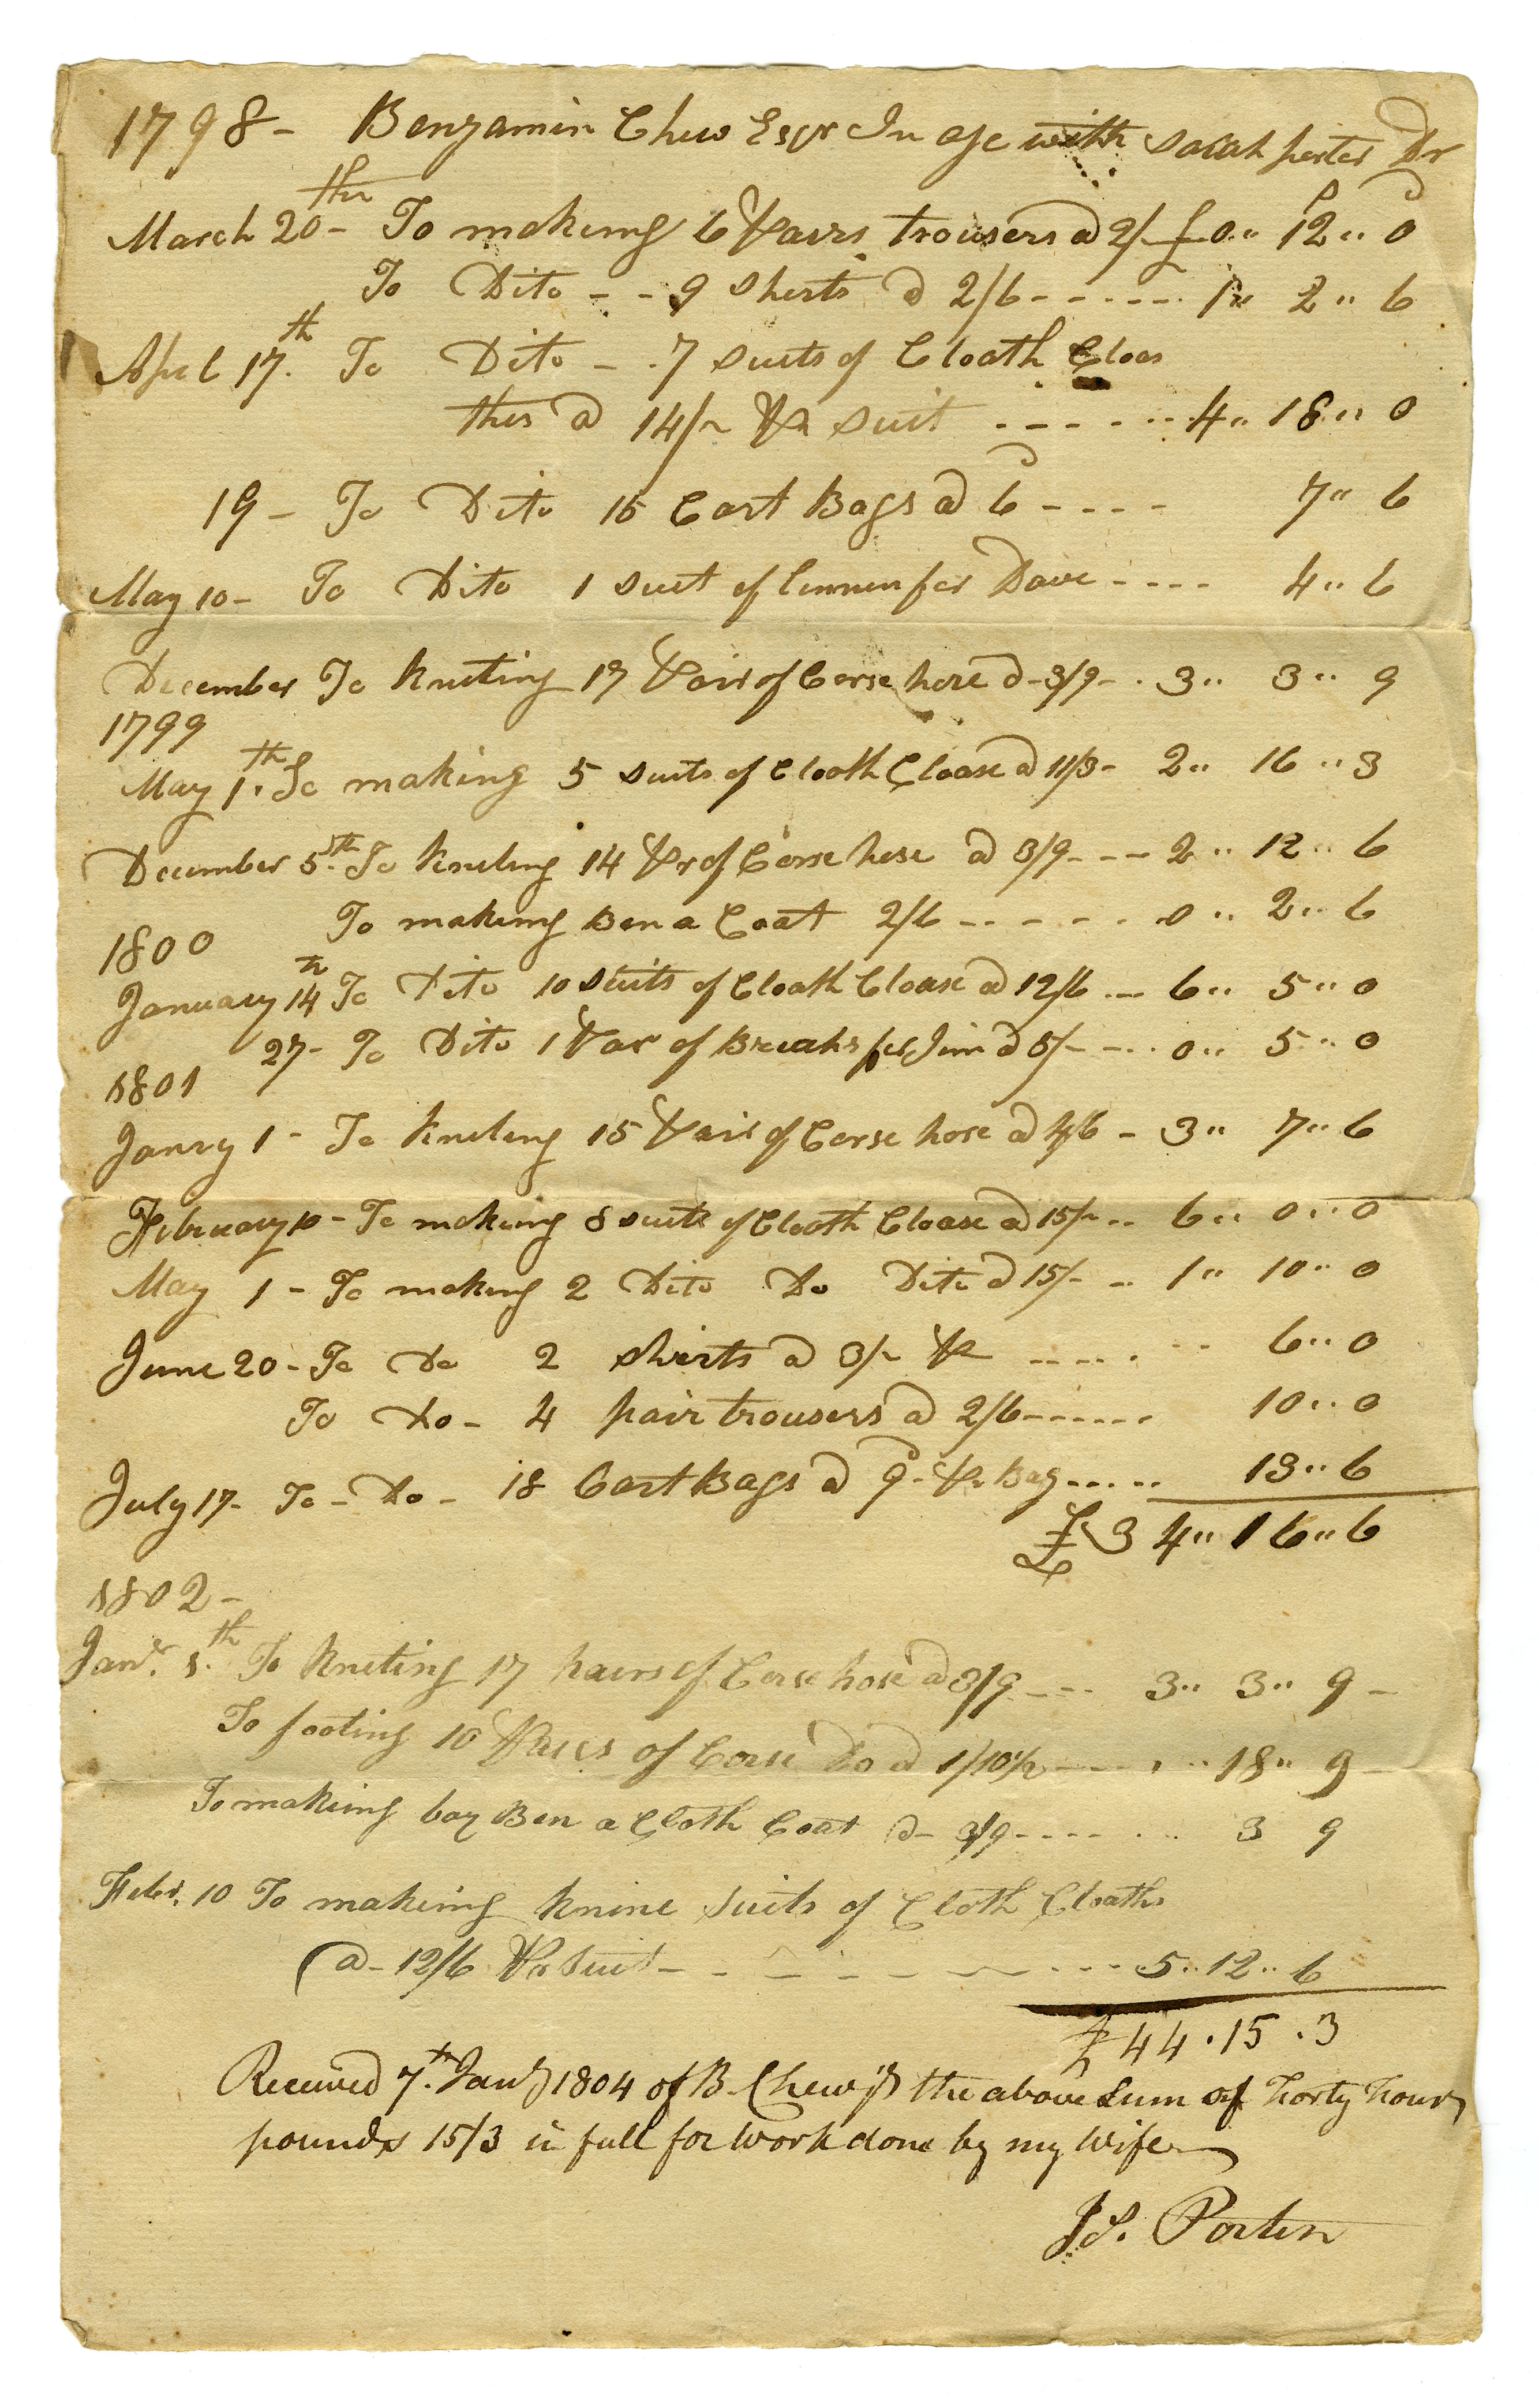 1798 - Benjamin Chew Esqr In a/c with Sarah porter Dr
March 20th - To making 6 Pairs trousers @ 2/ - £0 " 12 " 0
To Dito - - 9 Sherts @ 2/6 - - - - - 1 " 2 " 6
Aprel 17th. To Dito - . 7 suits of Cloath Cloa
ths @ 14/- Pr suit - - - - - 4 " 18 " 0
19 - To Dito 15 Cart Bags @ 6d - - - - 7 " 6
May 10 - To Dito 1 suit of linnen for Dave - - - - 4 " 6
December To Kniting 17 Pair of Corse hose @ - 3/9 - . 3 " 3 " 9
1799
May 1th. To making 5 suits of Cloath Cloase @ 11/3 - 2 " 16 " 3
December 5th. To Kniting 14 Pr of Corse hose @ 3/9 - - - 2 " 12 " 6
To making Ben a Coat 2/6 - - - - - 0 " 2 " 6
1800
January 14th To Dito 10 Suits of Cloath Cloase @ 12/6 - - 6 " 5 " 0
27 - To Dito 1 Par of Breaks for Jim @ 5/ - - - . 0 " 5 " 0
1801
Janry 1 - To Kniting 15 Pair of Corse hose @ 4/6 - 3 " 7 " 6
February 10 - To making 8 suits of Cloath Cloase @ 15/- .. 6 " 0 " 0
May 1 - To making 2 Dito Do Dito @ 15/- .. 1 " 10 " 0
June 20 - To Do 2 Shirts @ 3/- Pr - - - - . 6 " 0
To Do - 4 pair trousers @ 2/6 - - - - - - 10 " 0
July 17 - To - Do - 18 Cart Bags @ 9d - Pr Bag - - - - - 13 " 6
£34 " 16 " 6
1802 -
Janr. 1th. To Kniting 17 pairs of Corse hose @ 3/9 - - - 3 " 3 " 9 -
To footing 10 Pairs of Corse Do @ 1/10½ - - - - 18 " 9 -
To making boy Ben a Cloth Coat @ - 3/9 - - - - 3 9
Febr. 10 To making knine Suits of Cloth Cloaths
@ - 12/6 Pr Suit - - - - - - - - 5 " 12 " 6
£44 . 15 . 3
Received 7th. Jany 1804 of B. Chew Jr the above Sum of Forty Four
pounds 15/3 in full for Work done by my Wife
Js. Porter